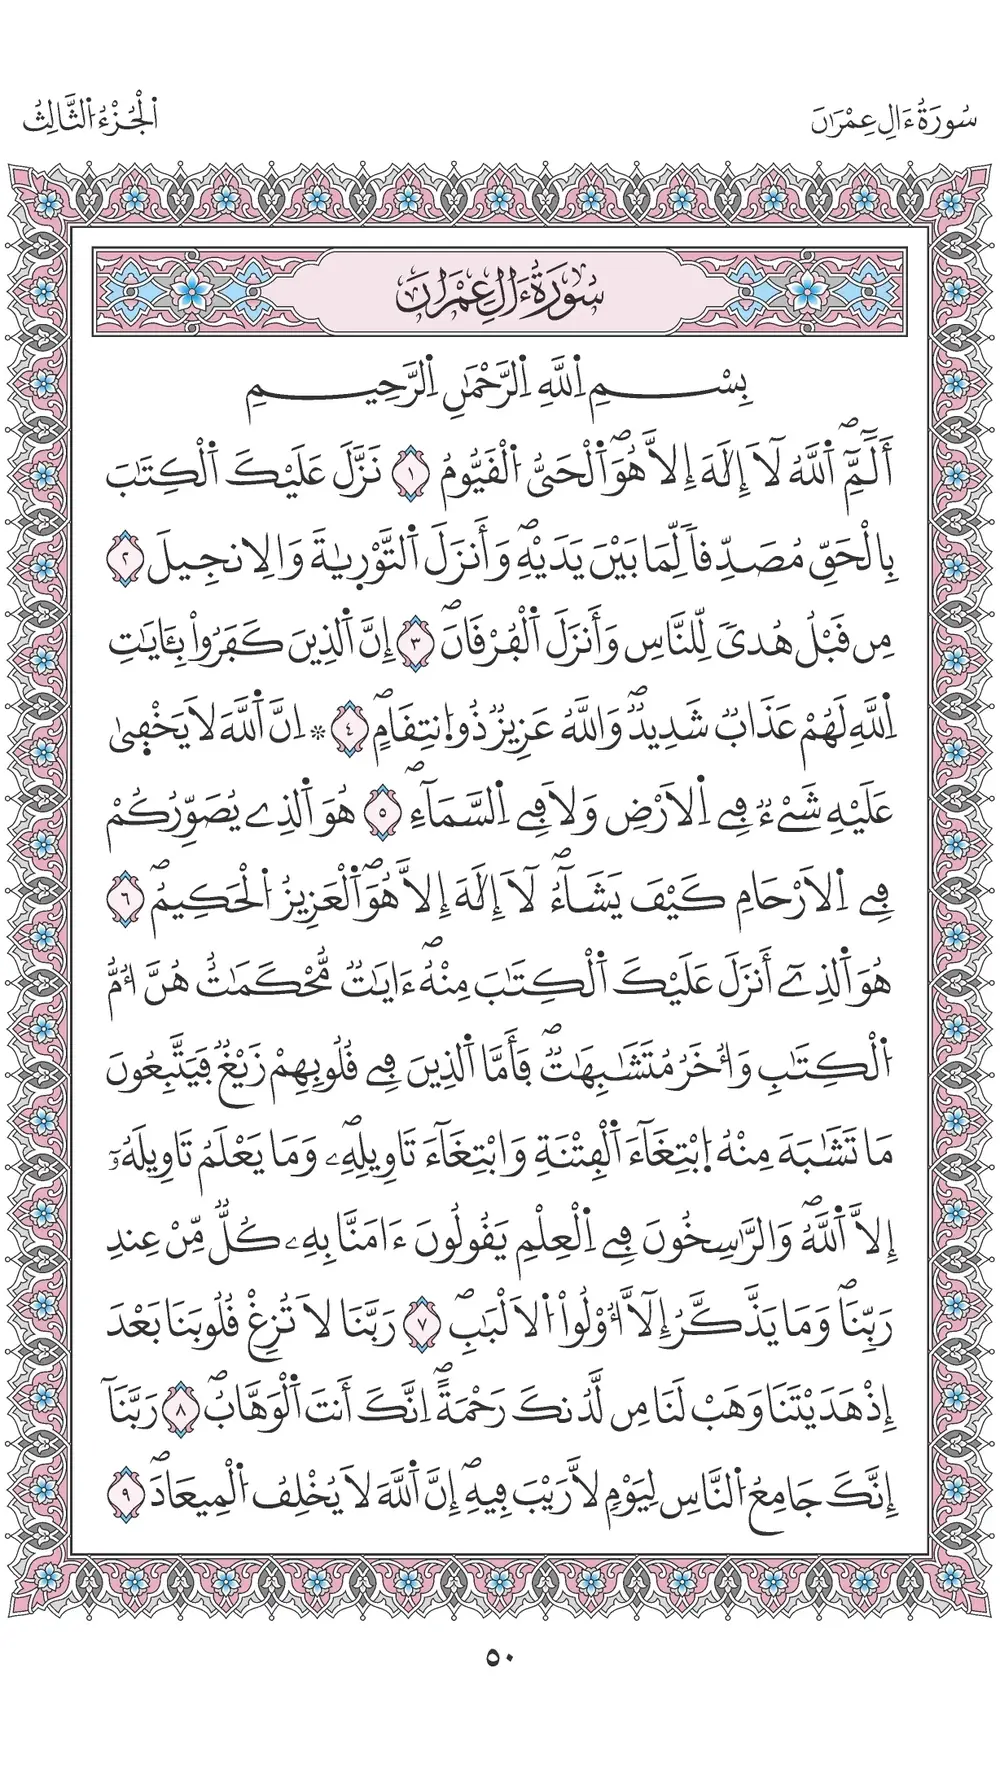 سُورَةُ ءَالِ عِمْرَٰنَ
اَ۬لْجُزْءُ اُ۬لثَّالِثُ
سُورَةُ ءَالِ عِمْرَٰنَ
بِسْمِ اِ۬للَّهِ اِ۬لرَّحْمَٰنِ اِ۬لرَّحِيمِ
أَلَٓمِّٓۖ اَ۬للَّهُ لَآ إِلَٰهَ إِلَّا هُوَۖ اَ۬لْحَيُّ اُ۬لْقَيُّومُ ١ نَزَّلَ عَلَيْكَ اَ۬لْكِتَٰبَ
بِالْحَقِّ مُصَدِّقاٗ لِّمَا بَيْنَ يَدَيْهِۖ وَأَنزَلَ اَ۬لتَّوْر۪يٰةَ وَالِانجِيلَ ٢
مِن قَبْلُ هُديٗ لِّلنَّاسِ وَأَنزَلَ اَ۬لْفُرْقَانَۖ ٣ إِنَّ اَ۬لذِينَ كَفَرُواْ بِـَٔايَٰتِ
اِ۬للَّهِ لَهُمْ عَذَابٞ شَدِيدٞۖ وَاللَّهُ عَزِيزٞ ذُو اُ۪نتِقَامٍۖ ٤ ۞ اِنَّ اَ۬للَّهَ لَا يَخْف۪يٰ
عَلَيْهِ شَےْءٞ فِے اِ۬لَارْضِ وَلَا فِے اِ۬لسَّمَآءِۖ ٥ هُوَ اَ۬لذِے يُصَوِّرُكُمْ
فِے اِ۬لَارْحَامِ كَيْفَ يَشَآءُۖ لَآ إِلَٰهَ إِلَّا هُوَۖ اَ۬لْعَزِيزُ اُ۬لْحَكِيمُۖ ٦
هُوَ اَ۬لذِےٓ أَنزَلَ عَلَيْكَ اَ۬لْكِتَٰبَ مِنْهُۖ ءَايَٰتٞ مُّحْكَمَٰتٌ هُنَّ أُمُّ
اُ۬لْكِتَٰبِ وَأُخَرُ مُتَشَٰبِهَٰتٞۖ فَأَمَّا اَ۬لذِينَ فِے قُلُوبِهِمْ زَيْغٞ فَيَتَّبِعُونَ
مَا تَشَٰبَهَ مِنْهُ اُ۪بْتِغَآءَ اَ۬لْفِتْنَةِ وَابْتِغَآءَ تَاوِيلِهِۦۖ وَمَا يَعْلَمُ تَاوِيلَهُۥٓ
إِلَّا اَ۬للَّهُۖ وَالرَّٰسِخُونَ فِے اِ۬لْعِلْمِ يَقُولُونَ ءَامَنَّا بِهِۦ كُلّٞ مِّنْ عِندِ
رَبِّنَاۖ وَمَا يَذَّكَّرُ إِلَّآ أُوْلُواْ اُ۬لَالْبَٰبِۖ ٧ رَبَّنَا لَا تُزِغْ قُلُوبَنَا بَعْدَ
إِذْ هَدَيْتَنَا وَهَبْ لَنَا مِن لَّدُنكَ رَحْمَةًۖ اِنَّكَ أَنتَ اَ۬لْوَهَّابُۖ ٨ رَبَّنَآ
إِنَّكَ جَامِعُ اُ۬لنَّاسِ لِيَوْمٖ لَّا رَيْبَ فِيهِۖ إِنَّ اَ۬للَّهَ لَا يُخْلِفُ اُ۬لْمِيعَادَۖ ٩
٥٠